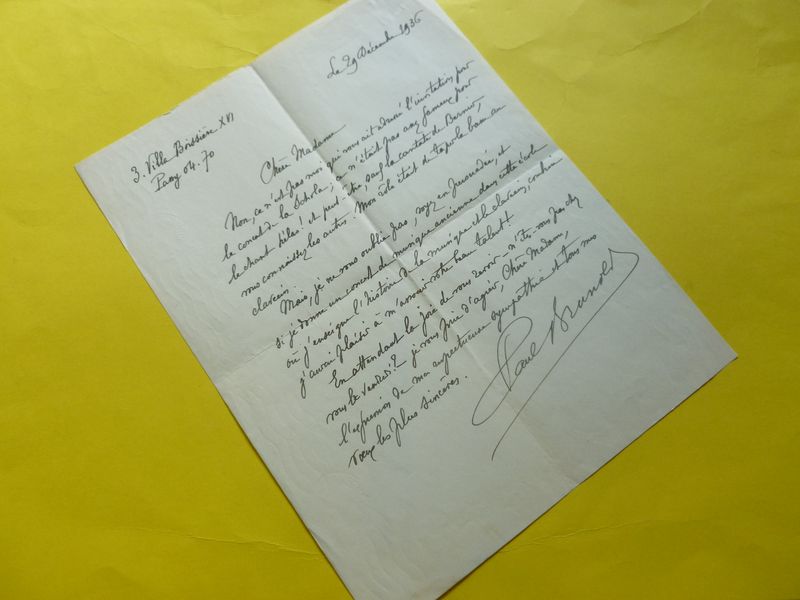 Le 29 Décembre 1936
3. Villa Boissière XVI
Passy 04.70
Chère Madame
Non, ce n'est pas moi qui vous ait adressé l'invitation pour
le concert de la Schola, ce n'était pas assez fameux pour
le chant hélas! et peut être, sauf la cantate de Bernier,
vous connaissez les autres. Mon rôle était de tenir la basse au
clavecin.
Mais, je ne vous oublie pas, soyez en persuadée, et
si je donne un concert de musique ancienne dans cette école
où j'enseigne l'histoire de la musique et le clavecin, combien
j'aurai plaisir à m'assurer votre beau talent!
En attendant la joie de vous revoir - n'êtes-vous pas chez
vous le vendredi? je vous prie d'agréer, Chère Madame,
l'expression de ma respectueuse sympathie et tous mes
vœux les plus sincères.
Paul Brunold